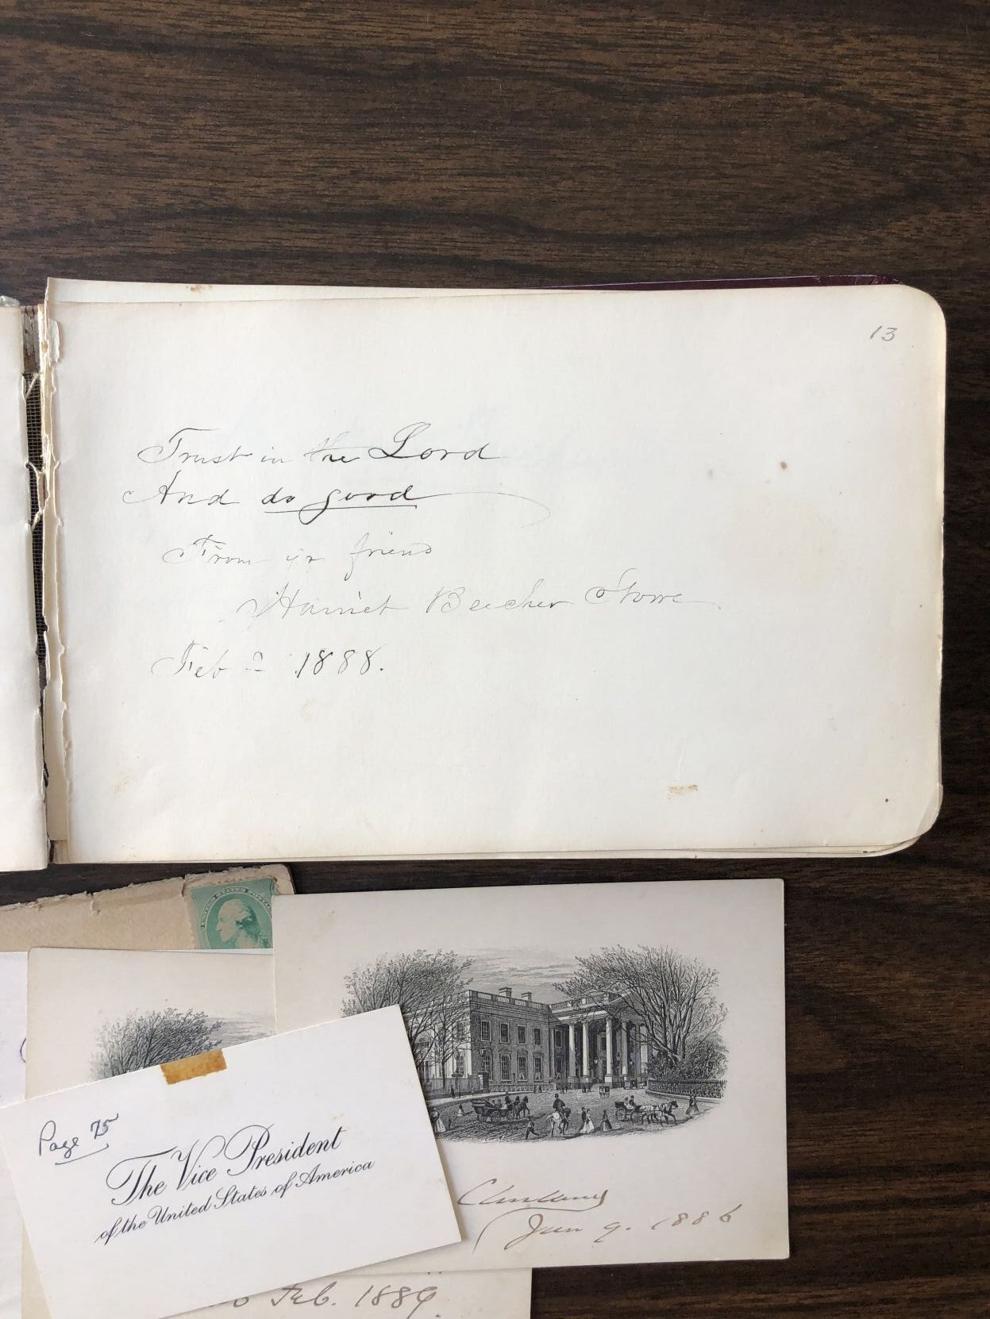 13
Trust in the Lord
And do good
From yr friend
Harriet Beecher Stowe
Feb 1888.
Page 75
The Vice President
of the United States of America
Cleveland
Jun 9. 1886
Feb. 1889.